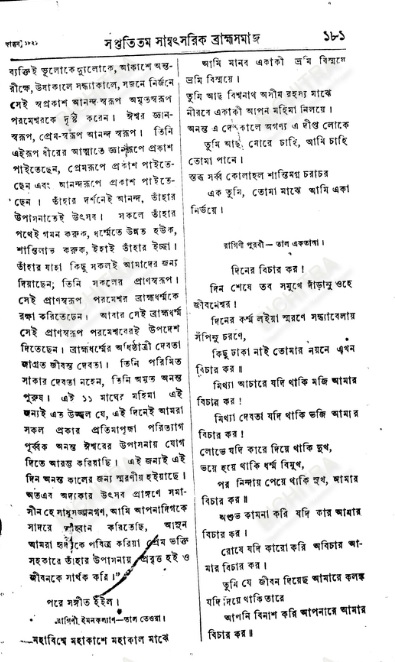 ফাল্গুন, ১৮২১
সপ্ততিতম সাম্বৎসরিক ব্রাহ্মসমাজ
১৮১
ব্যক্তিই ভূলোকে দ্যুলোকে, আকাশে অন্ত-
রীক্ষে, উষাকালে সন্ধ্যাকালে, সজনে নির্জনে
সেই স্বপ্রকাশ আনন্দ স্বরূপ অমৃতস্বরূপ
পরমেশ্বরকে দৃষ্টি করেন। ঈশ্বর জ্ঞান-
স্বরূপ, প্রেম-স্বরূপ আনন্দ স্বরূপ। তিনি
এইরূপ ধীরের আত্মাতে জ্ঞানরূপে প্রকাশ
পাইতেছেন, প্রেমরূপে প্রকাশ পাইতে-
ছেন এবং আনন্দরূপে প্রকাশ পাইতে-
ছেন। তাঁহার দর্শনেই আনন্দ, তাঁহার
উপাসনাতেই উৎসব। সকলে তাঁহার
পথেই গমন করুক, ধর্ম্মেতে উন্নত হউক,
শান্তিলাভ করুক, ইহাই তাঁহার ইচ্ছা।
তাঁহার যাহা কিছু সকলই আমাদের জন্য
দিয়াছেন; তিনি সকলের প্রাণস্বরূপ।
সেই প্রাণস্বরূপ পরমেশ্বর ব্রাহ্মধর্ম্মকে
রক্ষা করিতেছেন। আবার সেই ব্রাহ্মধর্ম্ম
সেই প্রাণস্বরূপ পরমেশ্বরেরই উপদেশ
দিতেছেন। ব্রাহ্মধর্ম্মের অধিষ্ঠাত্রী দেবতা
জাগ্রত জীবন্ত দেবতা। তিনি পরিমিত
সাকার দেবতা নহেন, তিনি অমৃত অনন্ত
পুরুষ। এই ১১ মাঘের মহিমা এই
জন্যই এত উজ্জ্বল যে, এই দিনেই আমরা
সকল প্রকার প্রতিমাপূজা পরিত্যাগ
পূর্ব্বক অনন্ত ঈশ্বরের উপাসনায় যোগ
দিতে আরম্ভ করিয়াছি। এই জন্যই এই
দিন অনন্ত কালের জন্য স্মরণীয় হইয়াছে।
অতএব অদ্যকার উৎসব প্রাঙ্গণে সমা-
সীন হে সাধুসজ্জনগণ, আমি আপনাদিগকে
সাদরে আহ্বান করিতেছি, আসুন
আমরা হৃদয়কে পবিত্র করিয়া প্রেম ভক্তি
সহকারে তাঁহার উপাসনায় প্রবৃত্ত হই ও
জীবনকে সার্থক করি।”
পরে সঙ্গীত হইল।
রাগিণী ইমনকল্যাণ—তাল তেওরা।
মহাবিশ্বে মহাকাশে মহাকাল মাঝে
আমি মানব একাকী ভ্রমি বিস্ময়ে
ভ্রমি বিস্ময়ে।
তুমি আছ বিশ্বনাথ অসীম রহস্য মাঝে
নীরবে একাকী আপন মহিমা নিলয়ে।
অনন্ত এ দেশকালে অগণ্য এ দীপ্ত লোকে
তুমি আছ মোরে চাহি, আমি চাহি
তোমা পানে।
স্তব্ধ সর্ব্ব কোলাহল শান্তিমগ্ন চরাচর
এক তুমি, তোমা মাঝে আমি একা
নির্ভয়ে।
রাগিণী পূরবী—তাল একতালা।
দিনের বিচার কর!
দিন শেষে তব সমুখে দাঁড়ানু ওহে
জীবনেশ্বর।
দিনের কর্ম্ম লইয়া স্মরণে সন্ধ্যাবেলায়
সঁপিনু চরণে,
কিছু ঢাকা নাই তোমার নয়নে এখন
বিচার কর॥
মিথ্যা আচারে যদি থাকি মজি আমার
বিচার কর!
মিথ্যা দেবতা যদি থাকি ভজি আমার
বিচার কর!
লোভে যদি কারে দিয়ে থাকি দুখ,
ভয়ে হয়ে থাকি ধর্ম্ম বিমুখ,
পর নিন্দায় পেয়ে থাকি সুখ, আমার
বিচার কর॥
অশুভ কামনা করি যদি কার আমার
বিচার কর।
রোষে যদি কারো করি অবিচার আ-
মার বিচার কর।
তুমি যে জীবন দিয়েছ আমারে কলঙ্ক
যদি দিয়ে থাকি তারে
আপনি বিনাশ করি আপনারে আমার
বিচার কর॥